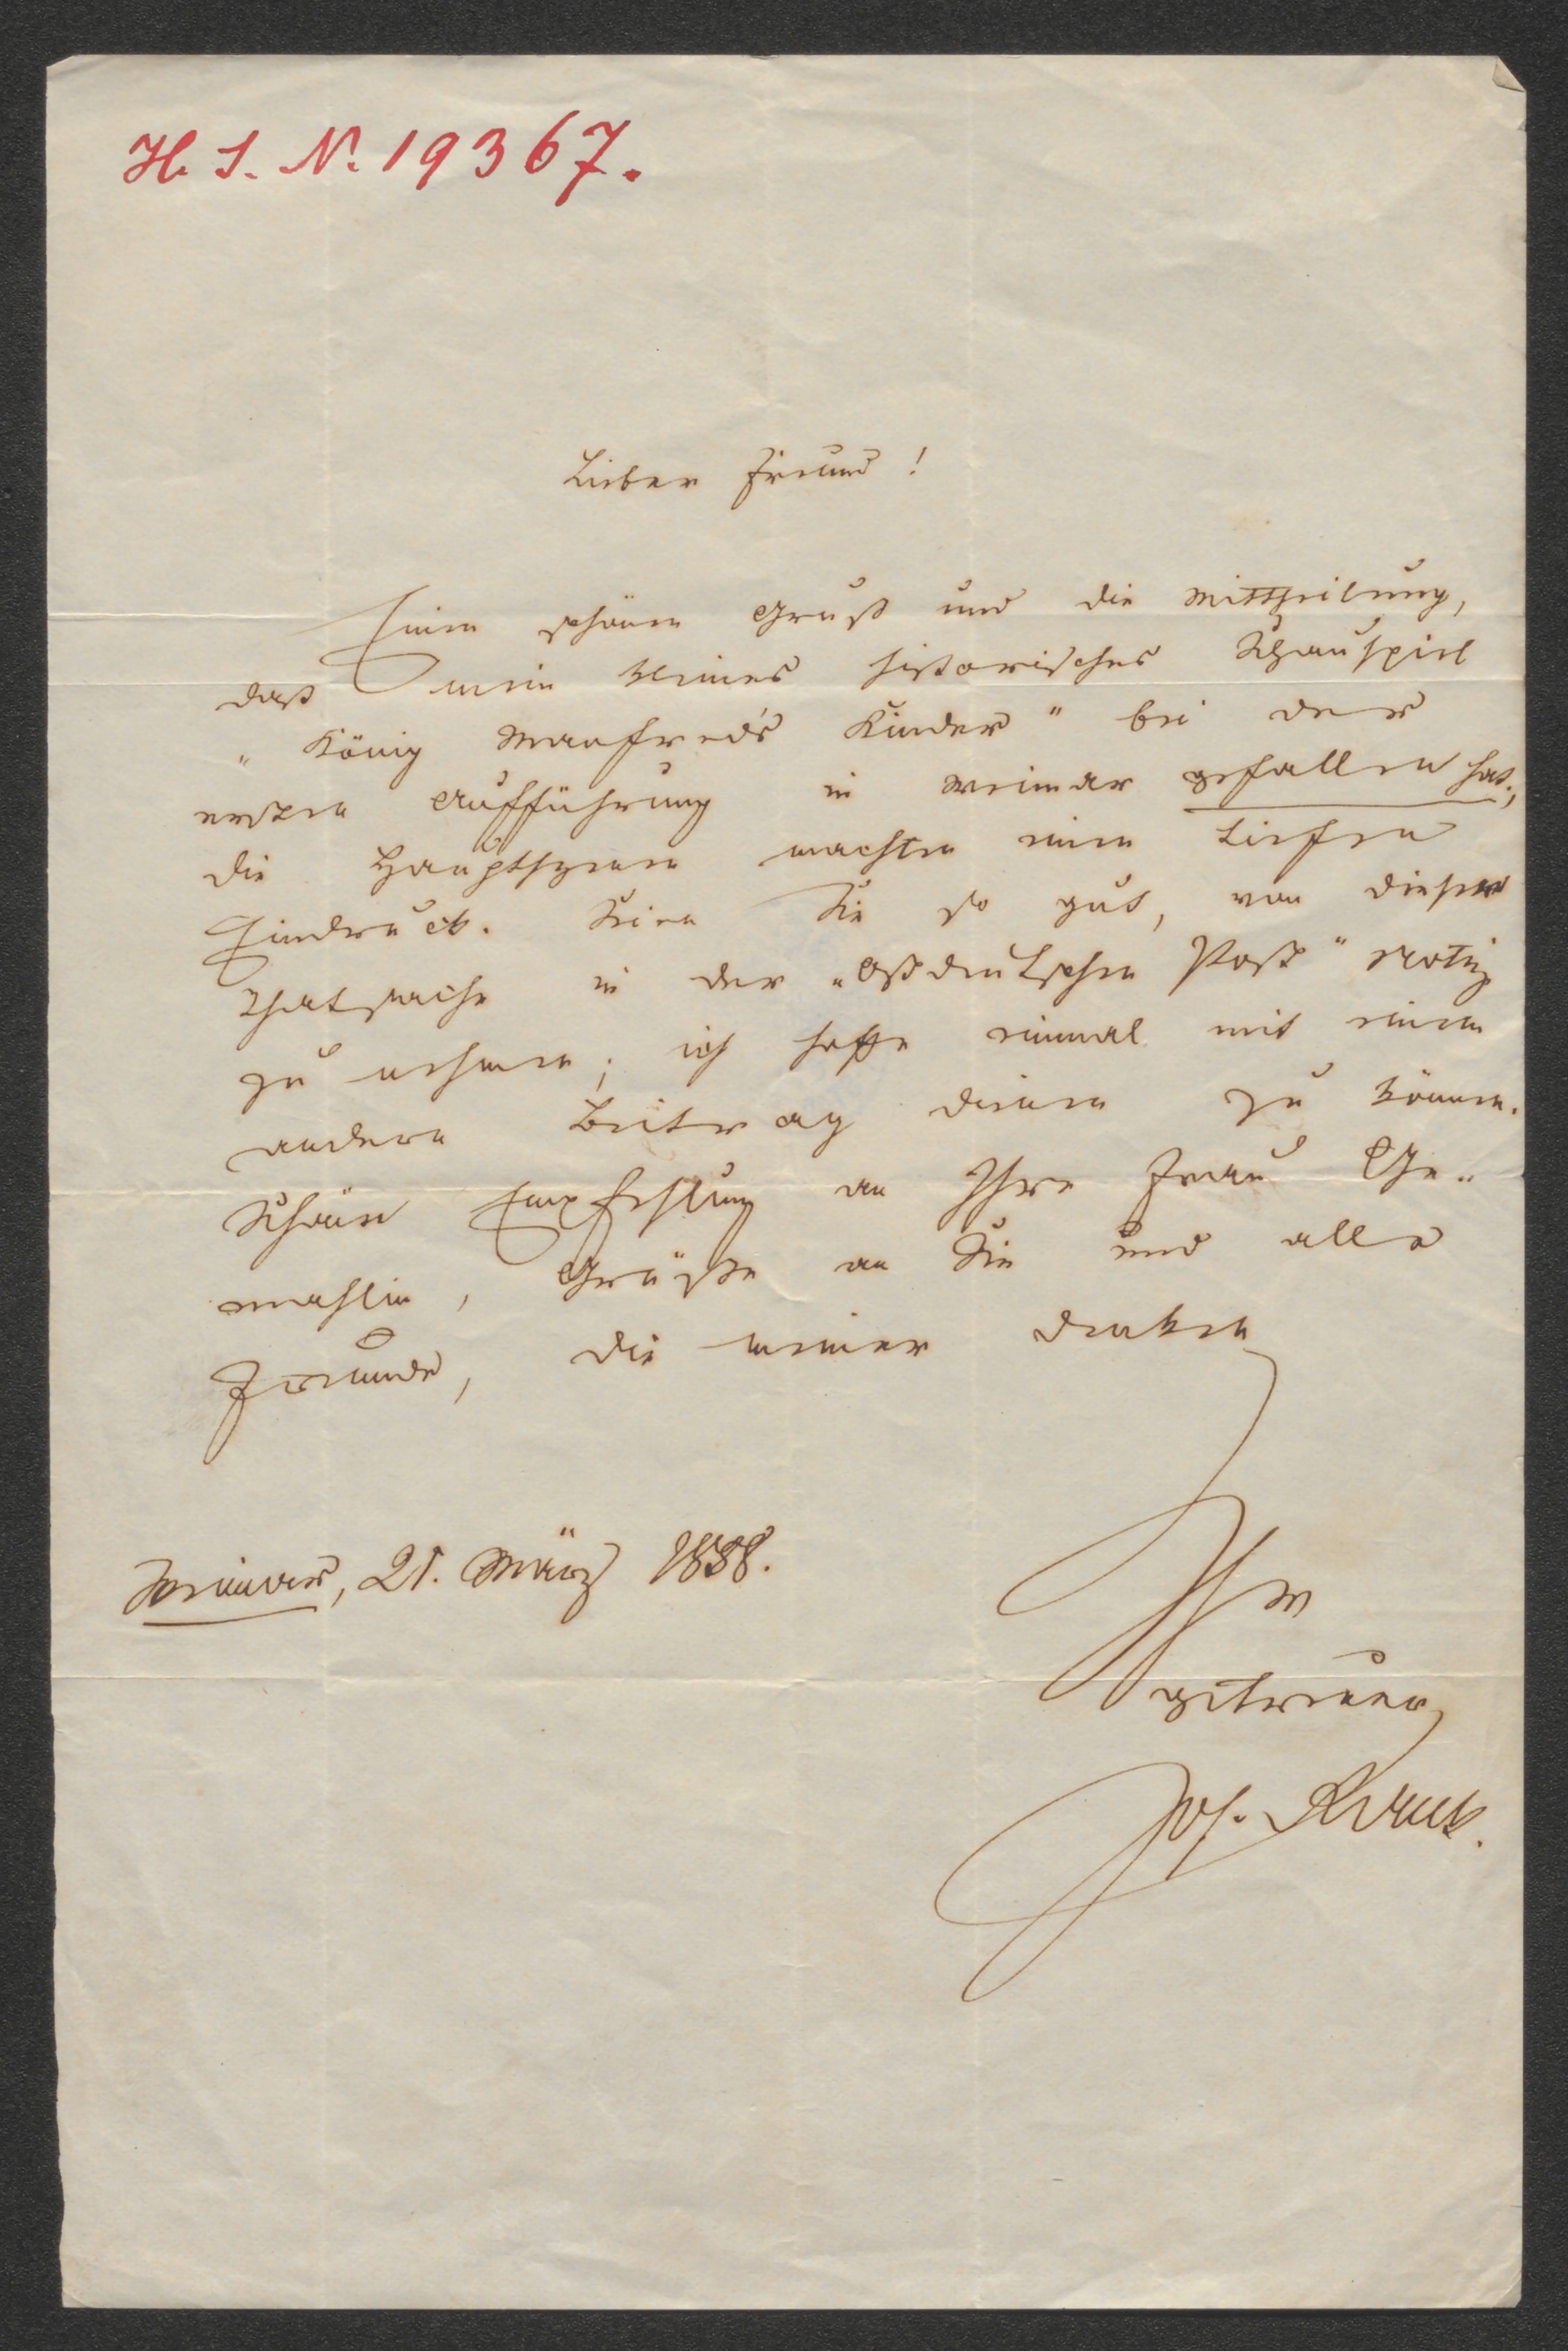 H. I. N. 19367.
Lieber Freund!
Einen schönen Gruß und die Mittheilung,
daß mein kleines historisches Schauspiel
„König Manfred's Kinder" bei der
ersten Aufführung in Weimar gefallen hat;
die Hauptszenen machten einen tiefen
Eindruck. Seien Sie so gut, von dieser
Thatsache in der „Ostdeutschen Post" Notiz
zu nehmen; ich hoffe einmal mit einem
andern Beitrag dienen zu können.
Schöne Empfehlung an Ihre Frau Ge-
mahlin, Grüße an Sie und alle
Freunde, die meiner denken
Weimar, 21. März 1888.
Ihr
getreuer
Jos.